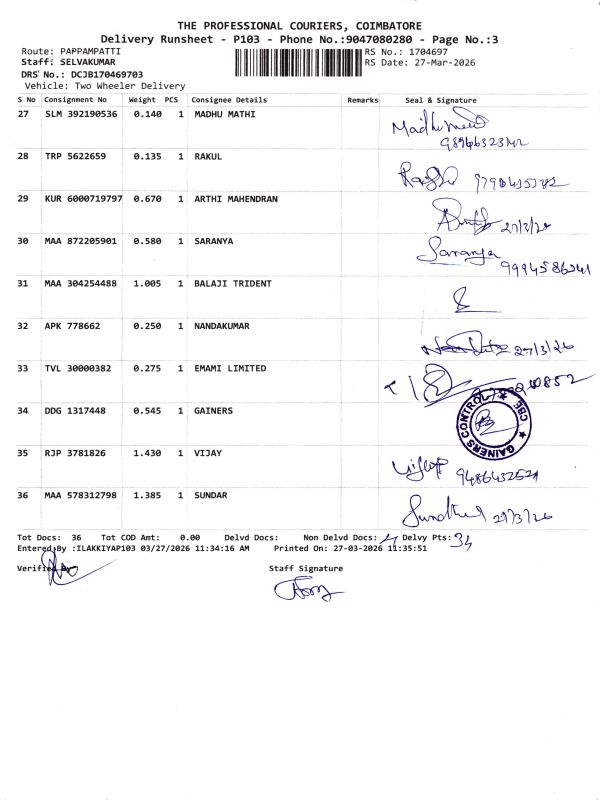 THE PROFESSIONAL COURIERS, COIMBATORE
Delivery Runsheet - P103 - Phone No.:9047080280 - Page No.:3
Route: PAPPAMPATTI RS No.: 1704697
Staff: SELVAKUMAR RS Date: 27-Mar-2026
DRS No.: DCJB170469703
Vehicle: Two Wheeler Delivery
S No Consignment No Weight PCS Consignee Details Remarks Seal & Signature
27 SLM 392190536 0.140 1 MADHU MATHI
28 TRP 5622659 0.135 1 RAKUL
29 KUR 6000719797 0.670 1 ARTHI MAHENDRAN 27/3/26
30 MAA 872205901 0.580 1 SARANYA Saranya
31 MAA 304254488 1.005 1 BALAJI TRIDENT
32 APK 778662 0.250 1 NANDAKUMAR 27/3/26
33 TVL 30000382 0.275 1 EMAMI LIMITED
34 DDG 1317448 0.545 1 GAINERS GAINERS CONTROL CBE
35 RJP 3781826 1.430 1 VIJAY
36 MAA 578312798 1.385 1 SUNDAR
Tot Docs: 36 Tot COD Amt: 0.00 Delvd Docs: Non Delvd Docs: Delvy Pts: 34
Entered By :ILAKKIYAP103 03/27/2026 11:34:16 AM Printed On: 27-03-2026 11:35:51
Verified By Staff Signature